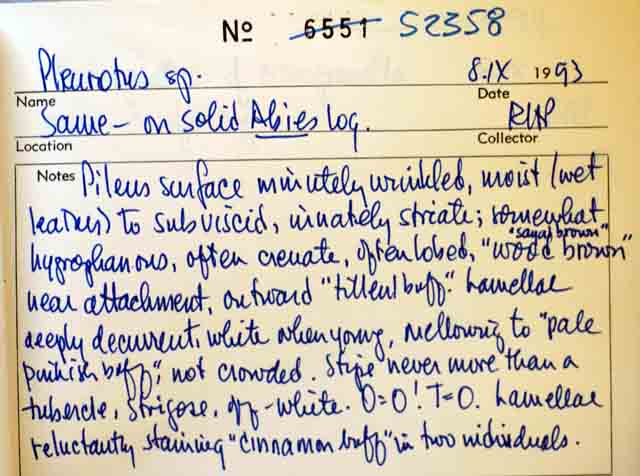 No 6551 52358
Pleurotus sp. 8.IX 1993
Name Date
Same - on solid Abies log. RHP
Location Collector
Notes Pileus surface minutely wrinkled, moist (wet
leather) to subviscid, innately striate; somewhat
"sayal brown"
hygrophanous, often crenate, often lobed, "wood brown"
near attachment, outward "tilleul buff." Lamellae
deeply decurrent, white when young, mellowing to "pale
pinkish buff," not crowded. Stipe never more than a
tubercle, strigose, off-white. O=O! T=O. Lamellae
reluctantly staining "cinnamon buff" in two individuals.